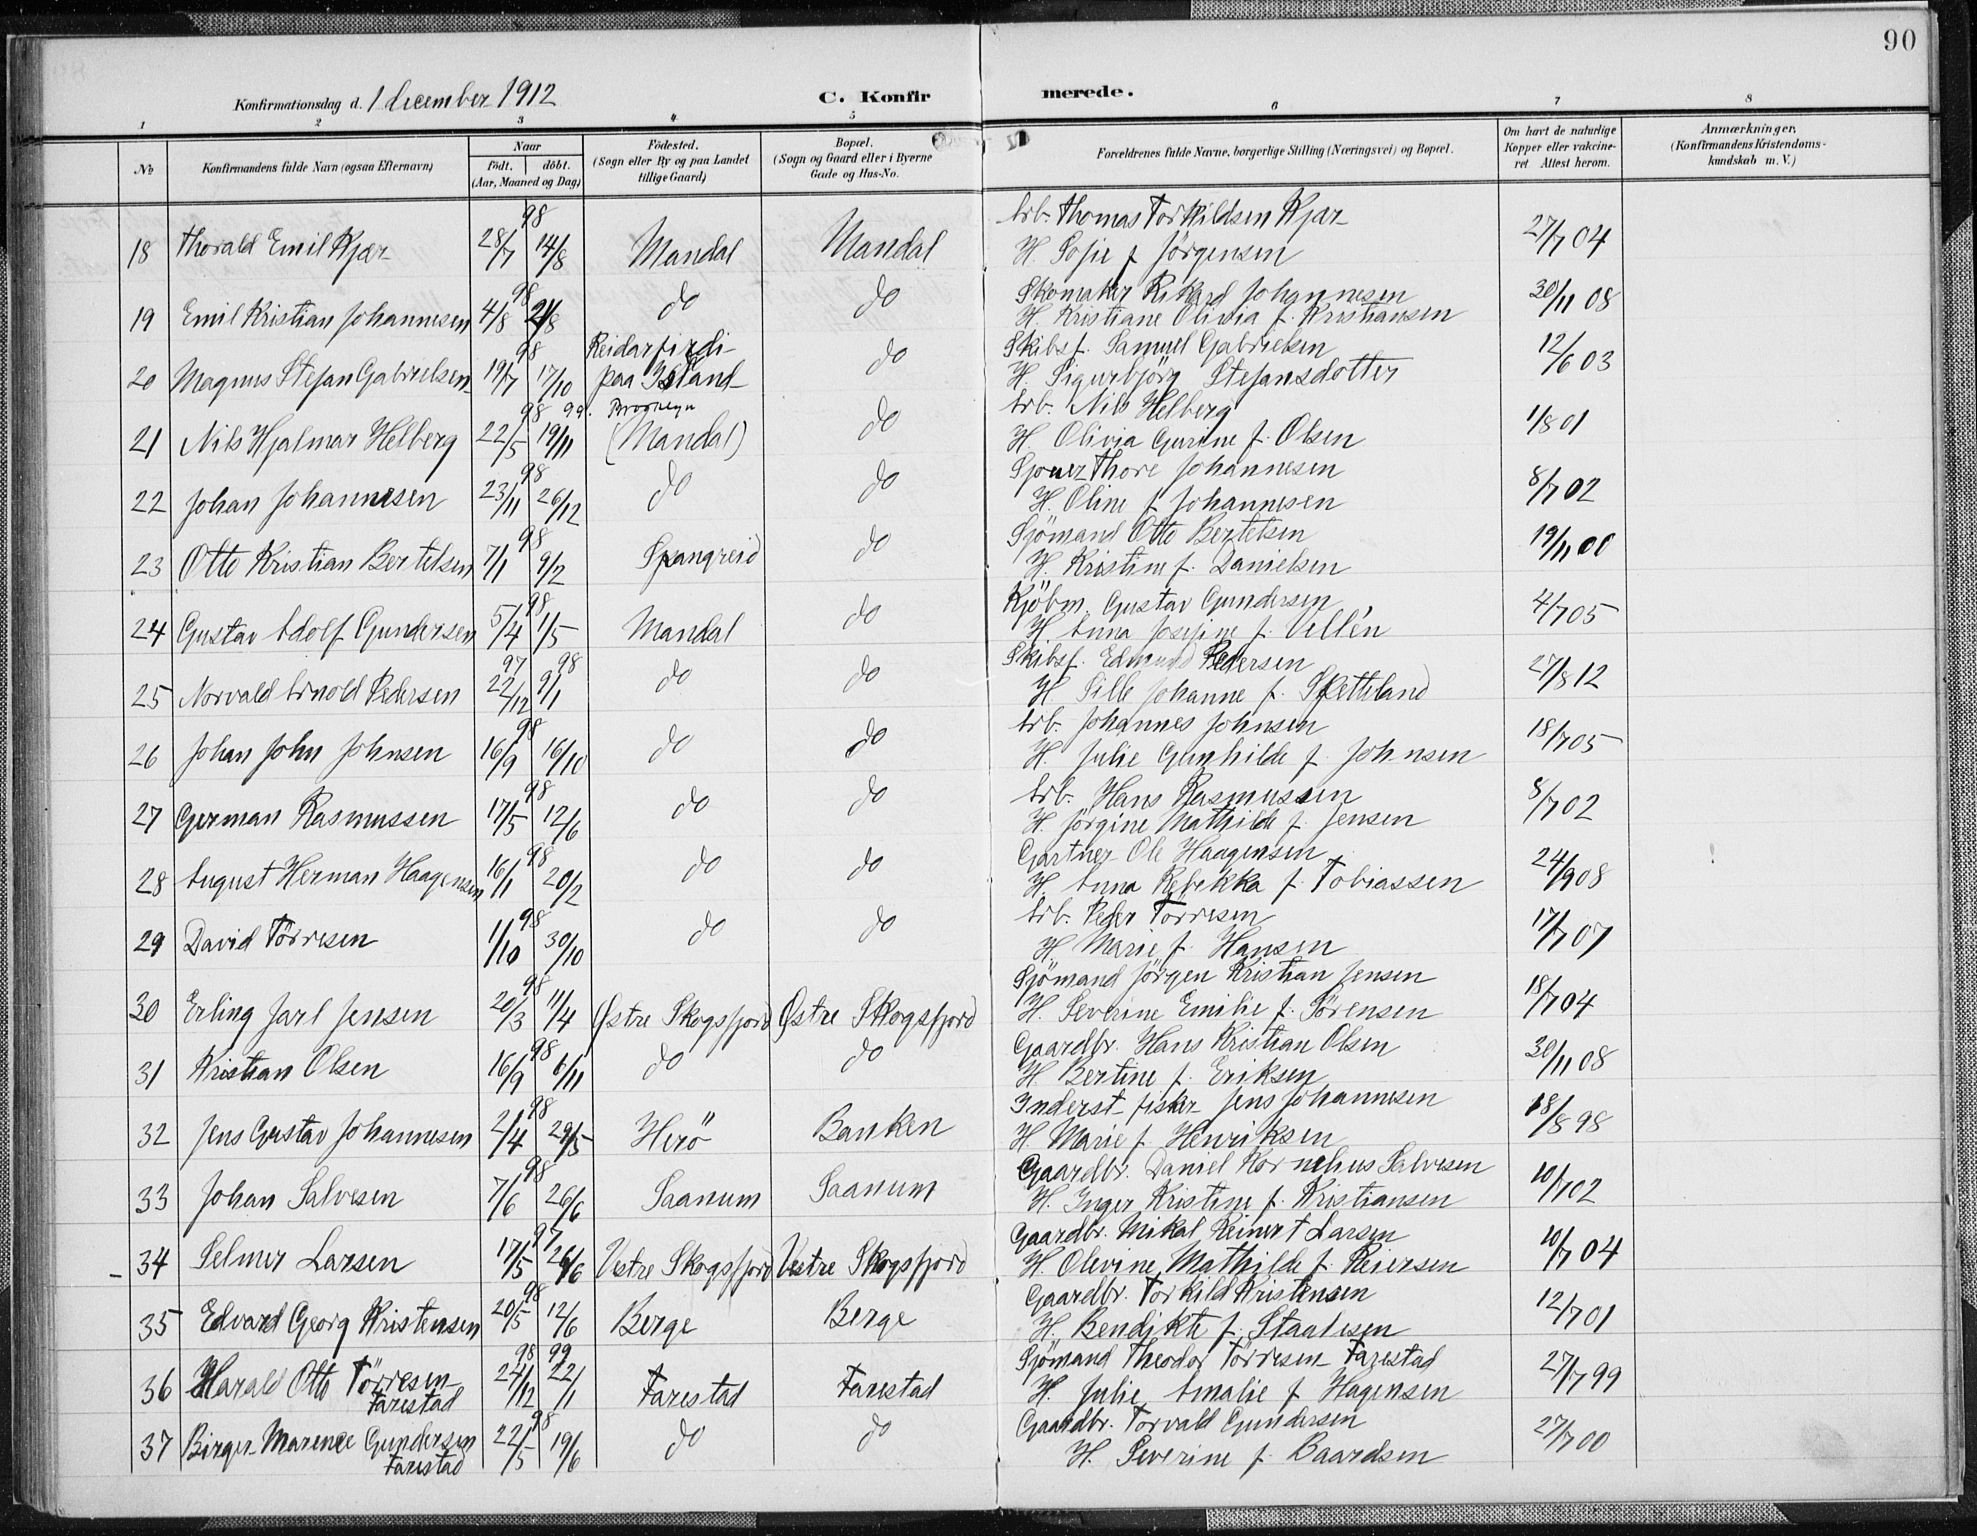 90
Konfirmationsdag d. 1 december 1912
C. Konfirmerede.
1 2 3 4 5 6 7 8
No
Konfirmandens fulde Navn (ogsaa Efternavn)
Naar
født. døbt.
(Aar, Maaned og Dag)
Födested.
(Sogn eller By og paa Landet
tillige Gaard)
Bopæl.
(Sogn og Gaard eller i Byerne
Gade og Hus-No.
Forældrenes fulde Navne, borgerlige Stilling (Næringsvei) og Bopæl.
Om havt de naturlige
Kopper eller vaccine-
ret Attest herom.
Anmærkninger,
(Konfirmandens Kristendoms-
kundskab m. V.)
98 Arb. Thomas Torkildsen Kjær
18 Thorald Emil Kjær 28/7 14/8 Mandal Mandal H. Sofie f Jörgensen 27/7 04
98 do do Skomaker Rikard Johannesen
19 Emil Kristian Johannesen 4/8 21/8 H. Kristiane Olivia f. Kristiansen 30/11 08
98 Reidarfirdi do Skibsf. Samuel Gabrielsen
20 Magnus Stefan Gabrielsen 19/7 17/10 paa Island H. Sigurbjörg Stefansdotter 12/6 03
98 99. Brooklyn do Arb. Nils Helberg
21 Nils Hjalmar Helberg 22/5 19/11 (Mandal) H. Olivia Gurine f. Olsen 1/8 01
98 do do Thore Johannesen
22 Johan Johannesen 23/11 26/12 H. Oline f Johannesen 8/7 02
98 do Sjömand Otto Bertelsen
23 Otto Kristian Bertelsen 7/1 9/2 Spangreid H. Kristine f. Danielsen 19/11 00
98 do Kjöbm. Gustav Gundersen
24 Gustav Adolf Gundersen 5/4 1/5 Mandal H. Anna Josefine f. Vellén 4/7 05
97 98 do do Skibsf. Edmund Pedersen
25 Norvald Arnold Pedersen 22/12 9/1 H Sille Johanne f. Sletteland 27/8 12
98 do do Arb. Johannes Johnsen
26 Johan John Johnsen 16/9 16/10 H. Julie Gunhilde f. Johnsen 18/7 05
98 do do Arb. Hans Rasmussen
27 German Rasmussen 17/5 12/6 H. Jörgine Mathilde f. Jensen 8/7 02
98 do do Gartner Ole Haagensen
28 August Herman Haagensen 16/1 20/2 H. Anna Rebekka f. Tobiassen 24/9 08
98 do do Arb. Peder Törresen
29 David Törresen 1/10 30/10 H. Marie f. Hansen 17/7 07
98 Sjömand Jörgen Kristian Jensen
30 Erling Jarl Jensen 20/3 11/4 Østre Skogsfjord Østre Skogsfjord H. Severine Emilie f. Sörensen 18/7 04
98 do do Gaardbr. Hans Kristian Olsen
31 Kristian Olsen 16/9 6/11 H. Bertine f. Eriksen 30/11 08
98 Inderst fisker Jens Johannesen
32 Jens Gustav Johannesen 2/4 29/5 Herö Banken H. Marie f. Henriksen 18/8 98
98 Gaardbr. Daniel Kornelius Salvesen
33 Johan Salvesen 7/6 26/6 Saanum Saanum H. Inger Kristine f. Kristiansen 10/7 02
97 Gaardbr. Mikal Reinert Larsen
34 Selmer Larsen 17/5 26/6 Vestre Skogsfjord Vestre Skogsfjord H Olevine Mathilde f. Reiersen 10/7 04
98 Gaardbr. Torkild Kristensen
35 Edvard Georg Kristensen 20/5 12/6 Berge Berge H. Bendikte f. Staalesen 12/7 01
98 99 Sjömand Theodor Törresen Farestad
36 Harald Otto Törresen 24/12 22/1 Farestad Farestad H. Julie Amalie f Hagensen 27/7 99
Farestad
98 Gaardbr. Torvald Gundersen
37 Birger Marence Gundersen 22/5 19/6 do do H. Severine f. Baardsen 27/7 00
Farestad